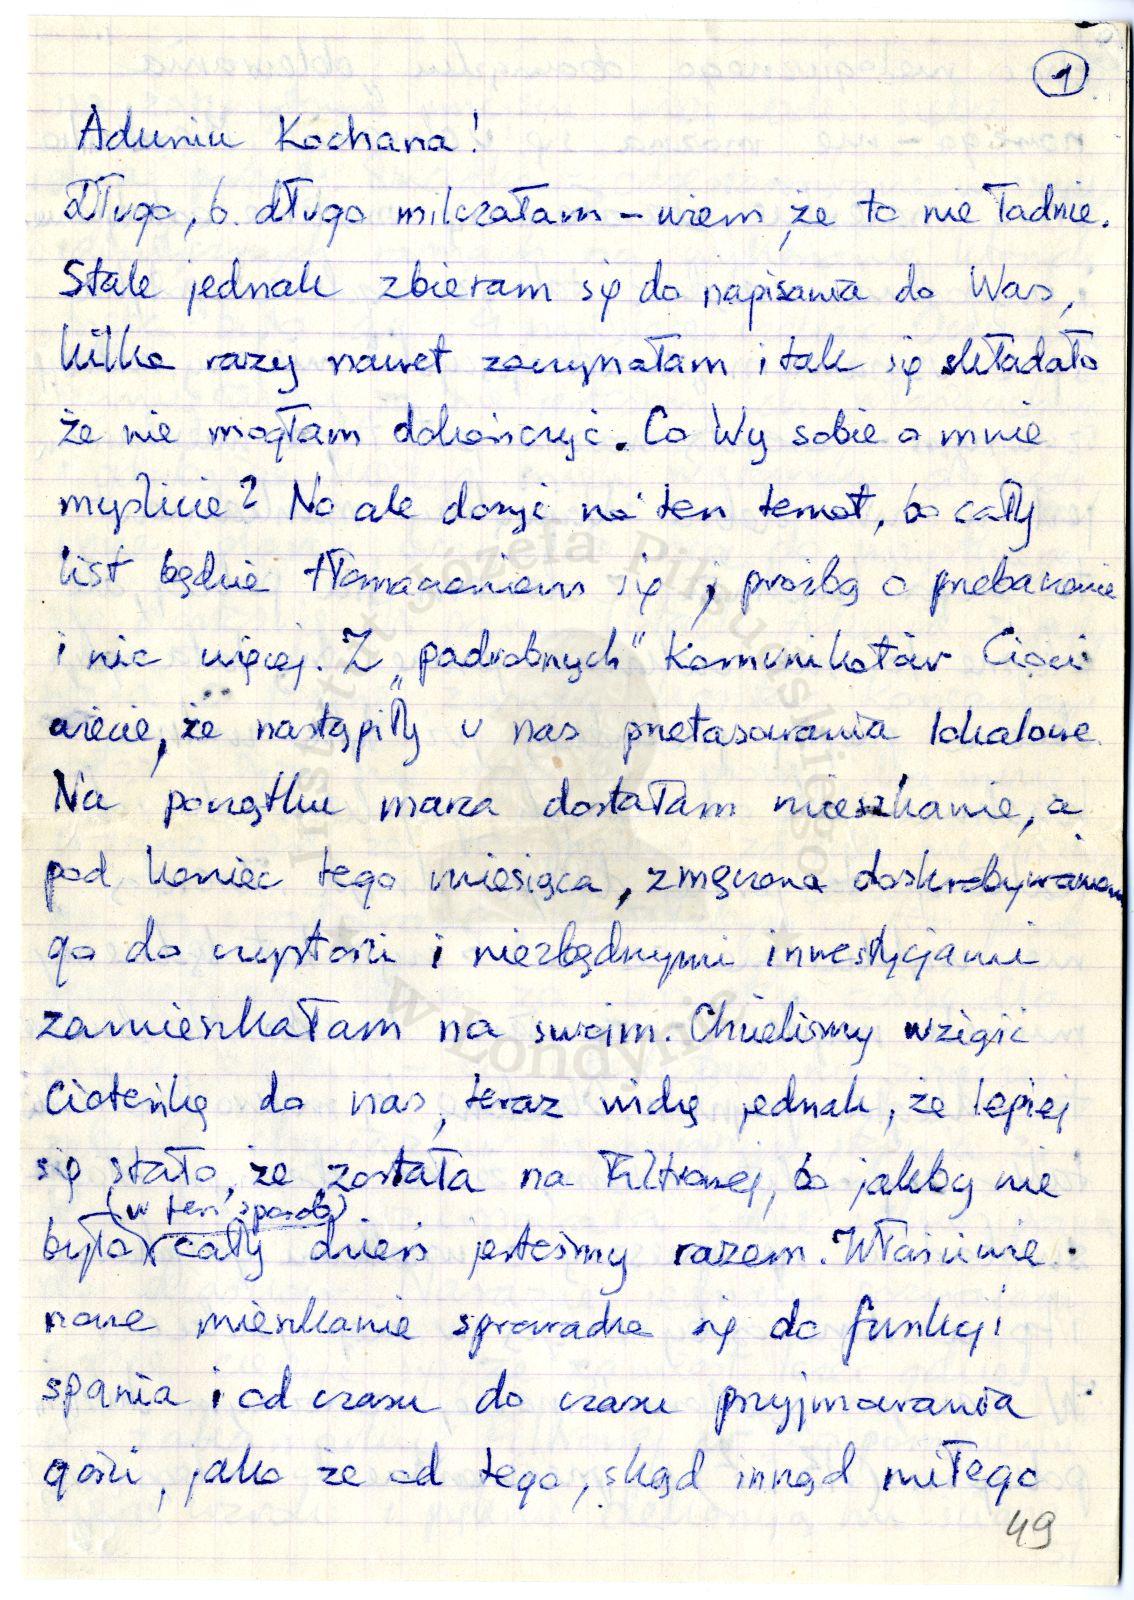 1
Aduniu Kochana!
Długo, b. długo milczałam – wiem, że to nie ładnie.
Stale jednak zbieram się do napisania do Was,
kilka razy nawet zaczynałam i tak się składało
że nie mogłam dokończyć. Co Wy sobie o mnie
myślicie? No ale dosyć na ten temat, bo cały
list będzie tłomaczeniem się i prośbą o przebaczenie
i nic więcej. Z „podrobnych" komunikatów Cioci
wiecie, że nastąpiły u nas przetasowania lokalowe.
Na początku marca dostałam mieszkanie, a
pod koniec tego miesiąca, zmęczona doskrobywaniem
go do czystości i niezbędnymi inwestycjami
zamieszkałam na swoim. Chcieliśmy wziąść
Cioteńkę do nas, teraz widzę jednak, że lepiej
się stało, że została na Filtrowej, bo jakby nie
(w ten sposób)
było cały dzień jesteśmy razem. Właściwie
nowe mieszkanie sprowadza się do funkcji
spania i od czasu do czasu przyjmowania
gości, jako że od tego, skąd inąd miłego
49
Instytut Józefa Piłsudskiego
w Londynie